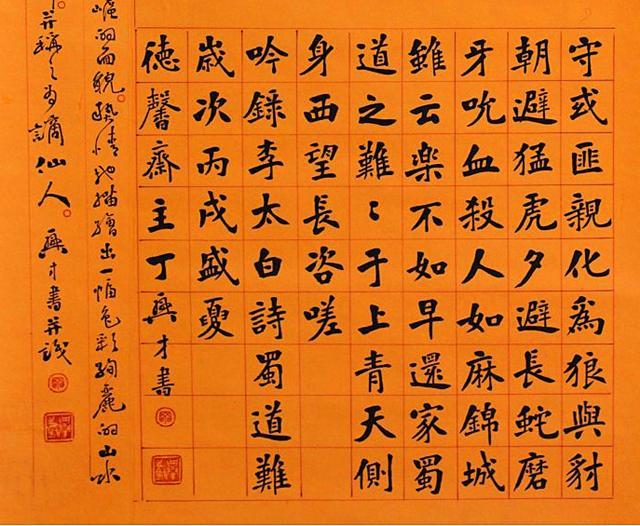 守或匪親化爲狼與豺
朝避猛虎夕避長蛇磨
牙吮血殺人如麻錦城
雖云楽不如早還家蜀
道之難〻于上青天側
身西望長咨嗟
吟錄李太白詩蜀道難
歲次丙戌盛夏
德馨齋主丁興才書
的面貌。情地描繪出一幅色彩絢麗的山水
。并稱之爲謫仙人。興才書并識